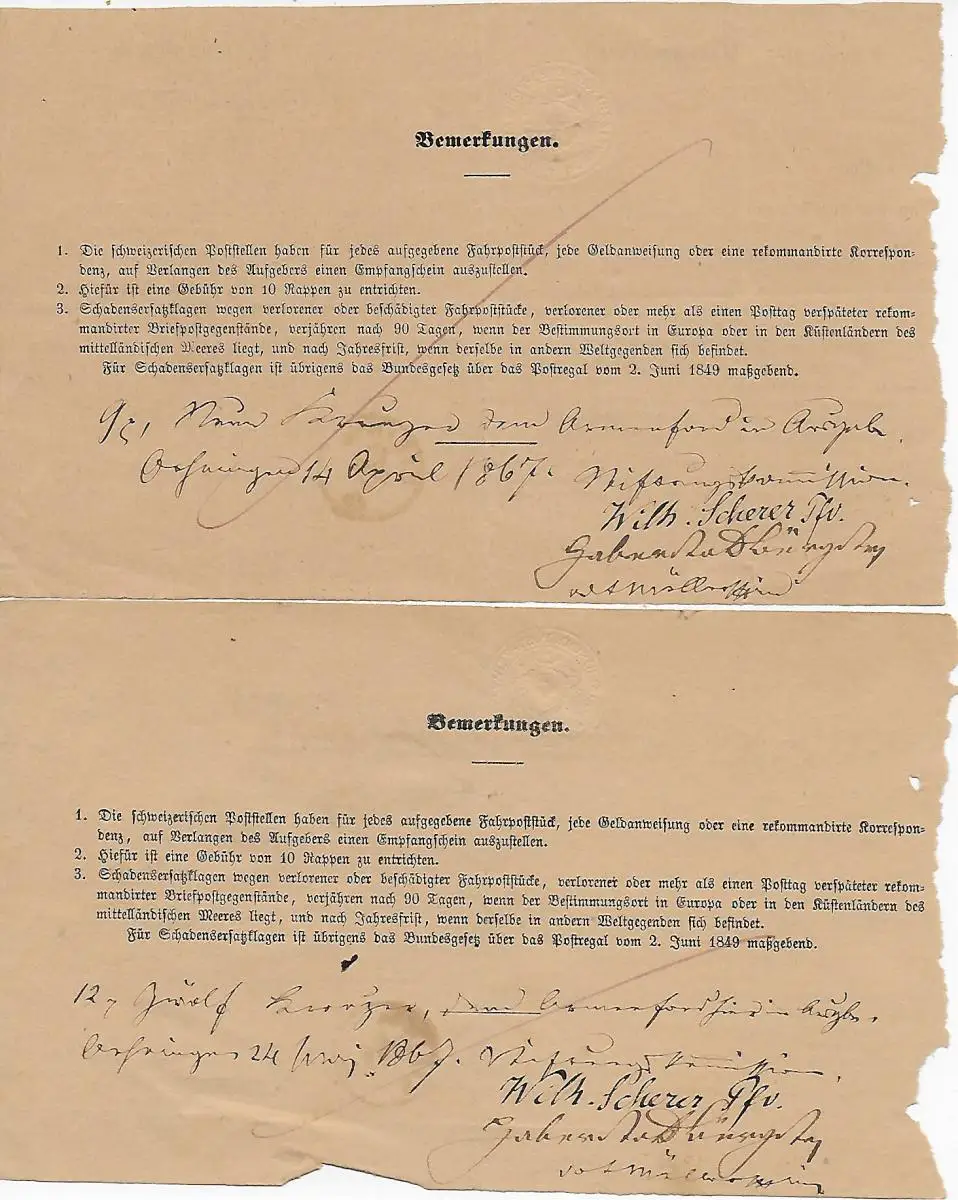 Bemerkungen.
1. Die schweizerischen Poststellen haben für jedes aufgegebene Fahrpoststück, jede Geldanweisung oder eine rekommandirte Korrespon-
denz, auf Verlangen des Aufgebers einen Empfangschein auszustellen.
2. Hiefür ist eine Gebühr von 10 Rappen zu entrichten.
3. Schadensersatzklagen wegen verlorener oder beschädigter Fahrpoststücke, verlorener oder mehr als einen Posttag verspäteter rekom-
mandirter Briefpostgegenstände, verjähren nach 90 Tagen, wenn der Bestimmungsort in Europa oder in den Küstenländern des
mittelländischen Meeres liegt, und nach Jahresfrist, wenn derselbe in andern Weltgegenden sich befindet.
Für Schadensersatzklagen ist übrigens das Bundesgesetz über das Postregal vom 2. Juni 1849 maßgebend.
Neun Kreuzer dem Armenfond in Ausgabe.
14 April 1867. Stiftungskommission.
Wilh. Scherer Pfr.
Bemerkungen.
1. Die schweizerischen Poststellen haben für jedes aufgegebene Fahrpoststück, jede Geldanweisung oder eine rekommandirte Korrespon-
denz, auf Verlangen des Aufgebers einen Empfangschein auszustellen.
2. Hiefür ist eine Gebühr von 10 Rappen zu entrichten.
3. Schadensersatzklagen wegen verlorener oder beschädigter Fahrpoststücke, verlorener oder mehr als einen Posttag verspäteter rekom-
mandirter Briefpostgegenstände, verjähren nach 90 Tagen, wenn der Bestimmungsort in Europa oder in den Küstenländern des
mittelländischen Meeres liegt, und nach Jahresfrist, wenn derselbe in andern Weltgegenden sich befindet.
Für Schadensersatzklagen ist übrigens das Bundesgesetz über das Postregal vom 2. Juni 1849 maßgebend.
Zwölf Kreuzer, dem Armenfond hier in Ausgabe.
24 Mai 1867. Stiftungskommission.
Wilh. Scherer Pfr.